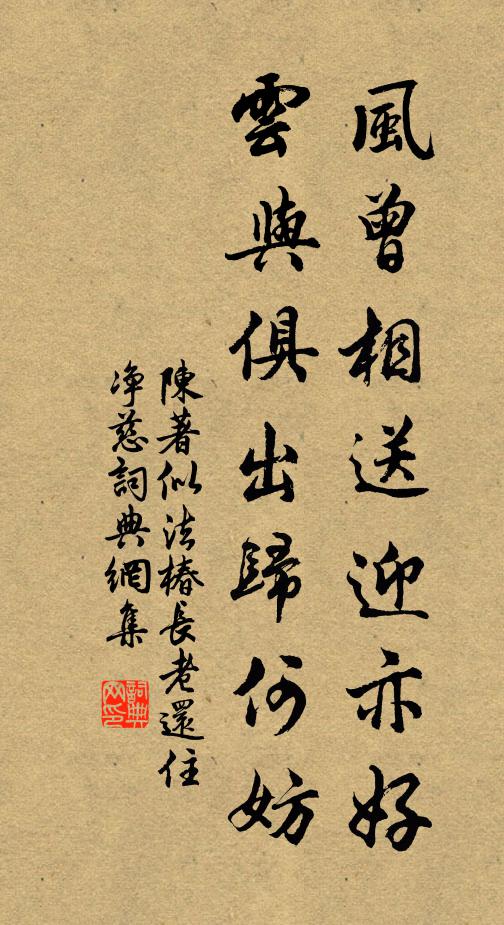 風曾相送迎亦好
雲與俱出歸何妨
陳著似法椿長老還住
净慈詞典網集
詞典
网印